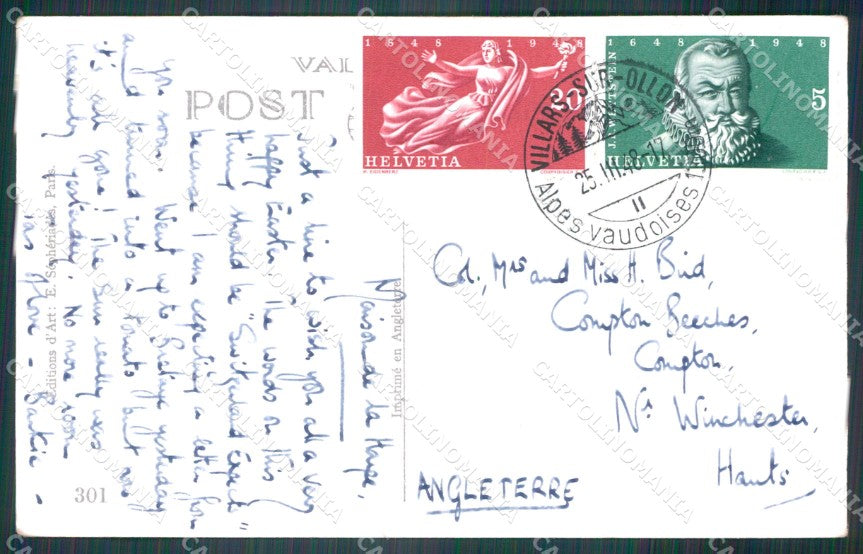 VAL
POST
1848 1948
20
HELVETIA
1648 1948
5
HELVETIA
VILLARS-SUR-OLLON
25.III.48.17
II
Alpes vaudoises
Maison de la Harpe,
Just a line to wish you all a very
happy Easter. The words on this
thing should be "Switzerland Expects"
because I am expecting a letter from
you soon. Went up to Bretaye yesterday
and turned into a tomato but now
it's all gone! The sun really was
heavenly yesterday. No more room
love -
Col., Mrs and Miss H. Bird,
Compton Beeches,
Compton,
Nr Winchester,
Hants
ANGLETERRE
Imprimé en Angleterre
Editions d'Art: E. Sephériadès, Paris.
301
CARTOLINOMANIA